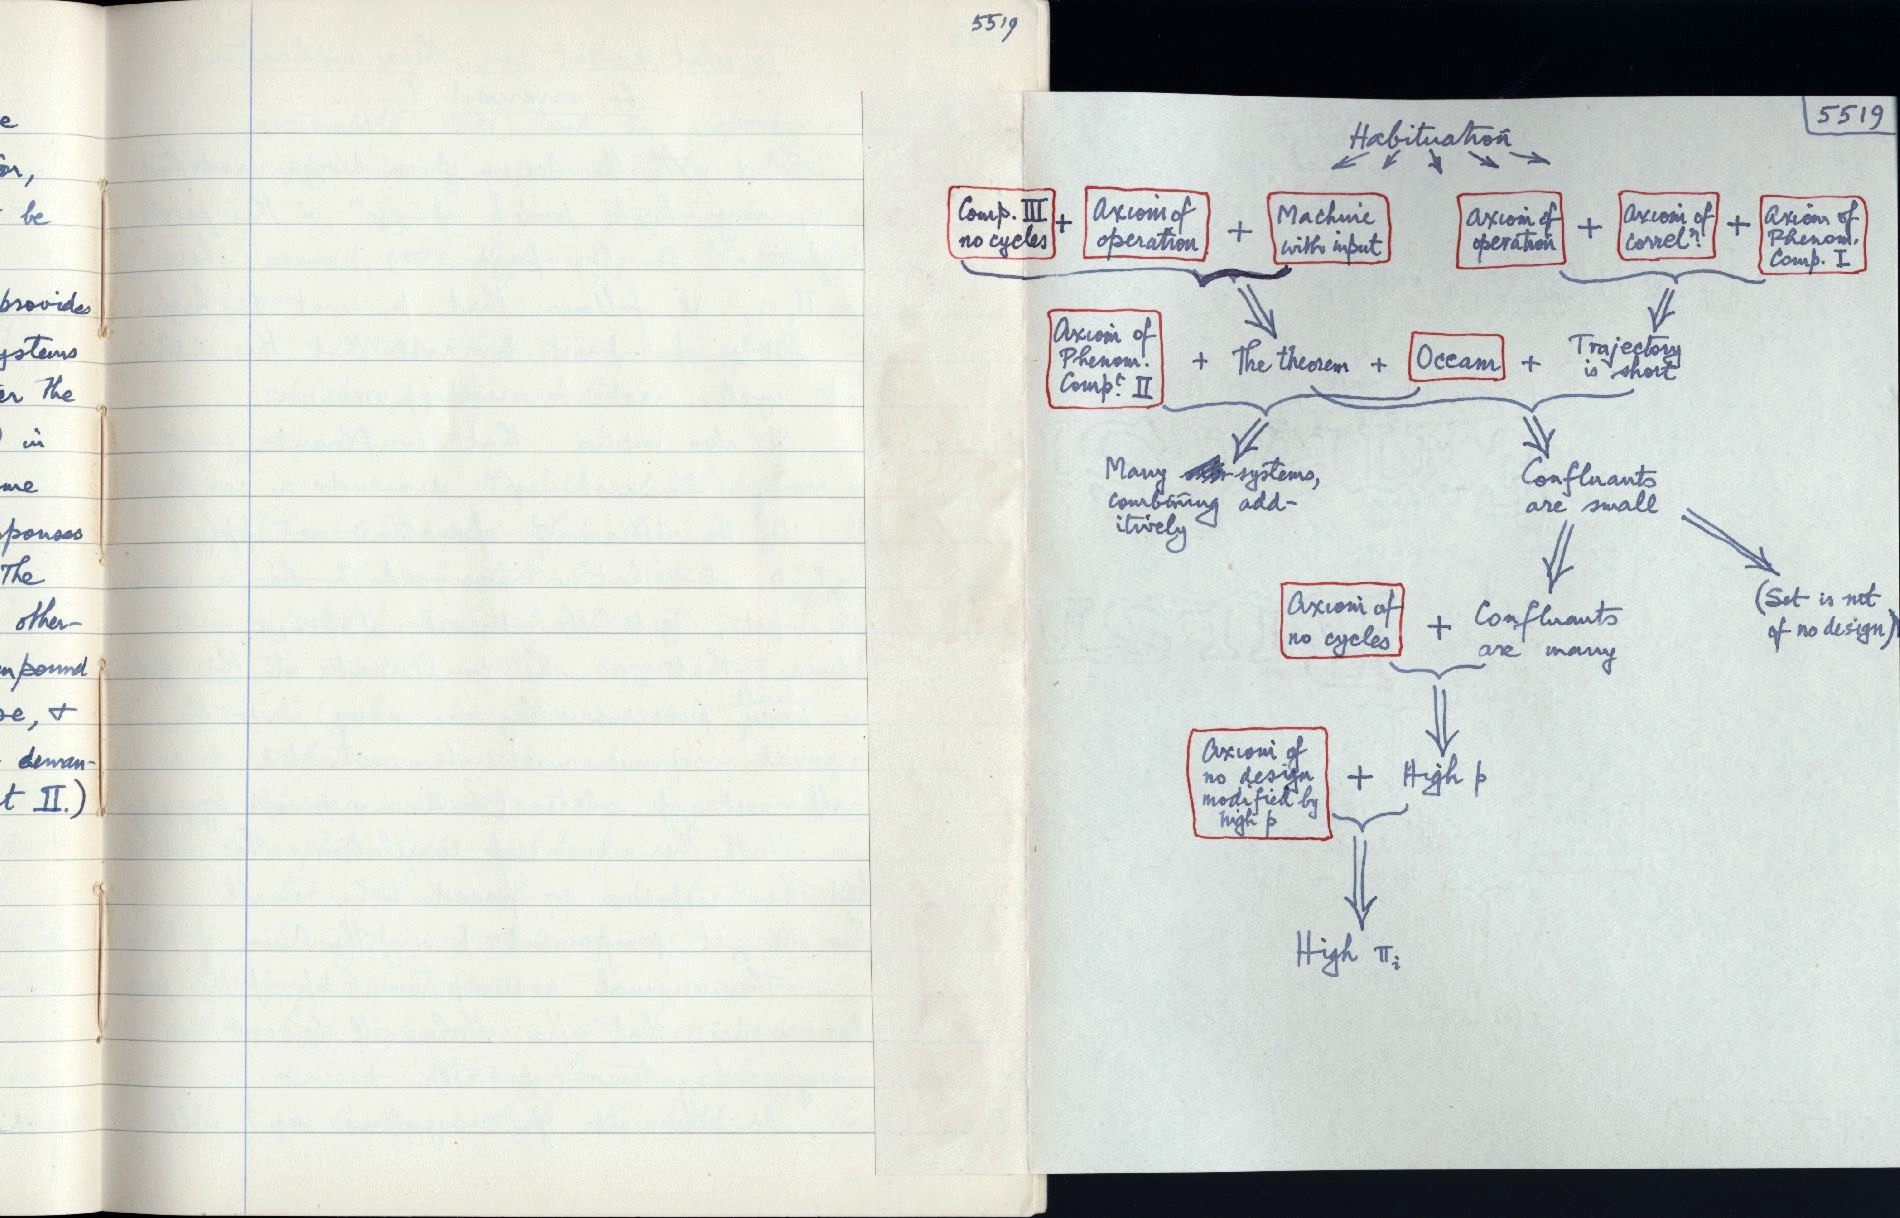 5519
e
or,
be
provides
ystems
er the
) in
me
sponses
The
other-
mpound
se, +
deman-
t II.)
5519
Habituation
Comp. III
no cycles
+
Axiom of
operation
+
Machine
with input
Axiom of
operation
+
Axiom of
correln.
+
Axiom of
Phenom.
Comp. I
Axiom of
Phenom.
Comp. II
+
The theorem
+
Occam
+
Trajectory
is short
Many systems,
combining add-
itively
Confluents
are small
Axiom of
no cycles
+
Confluents
are many
(Set is not
of no design)
Axiom of
no design
modified by
high p
+
High p
High πi